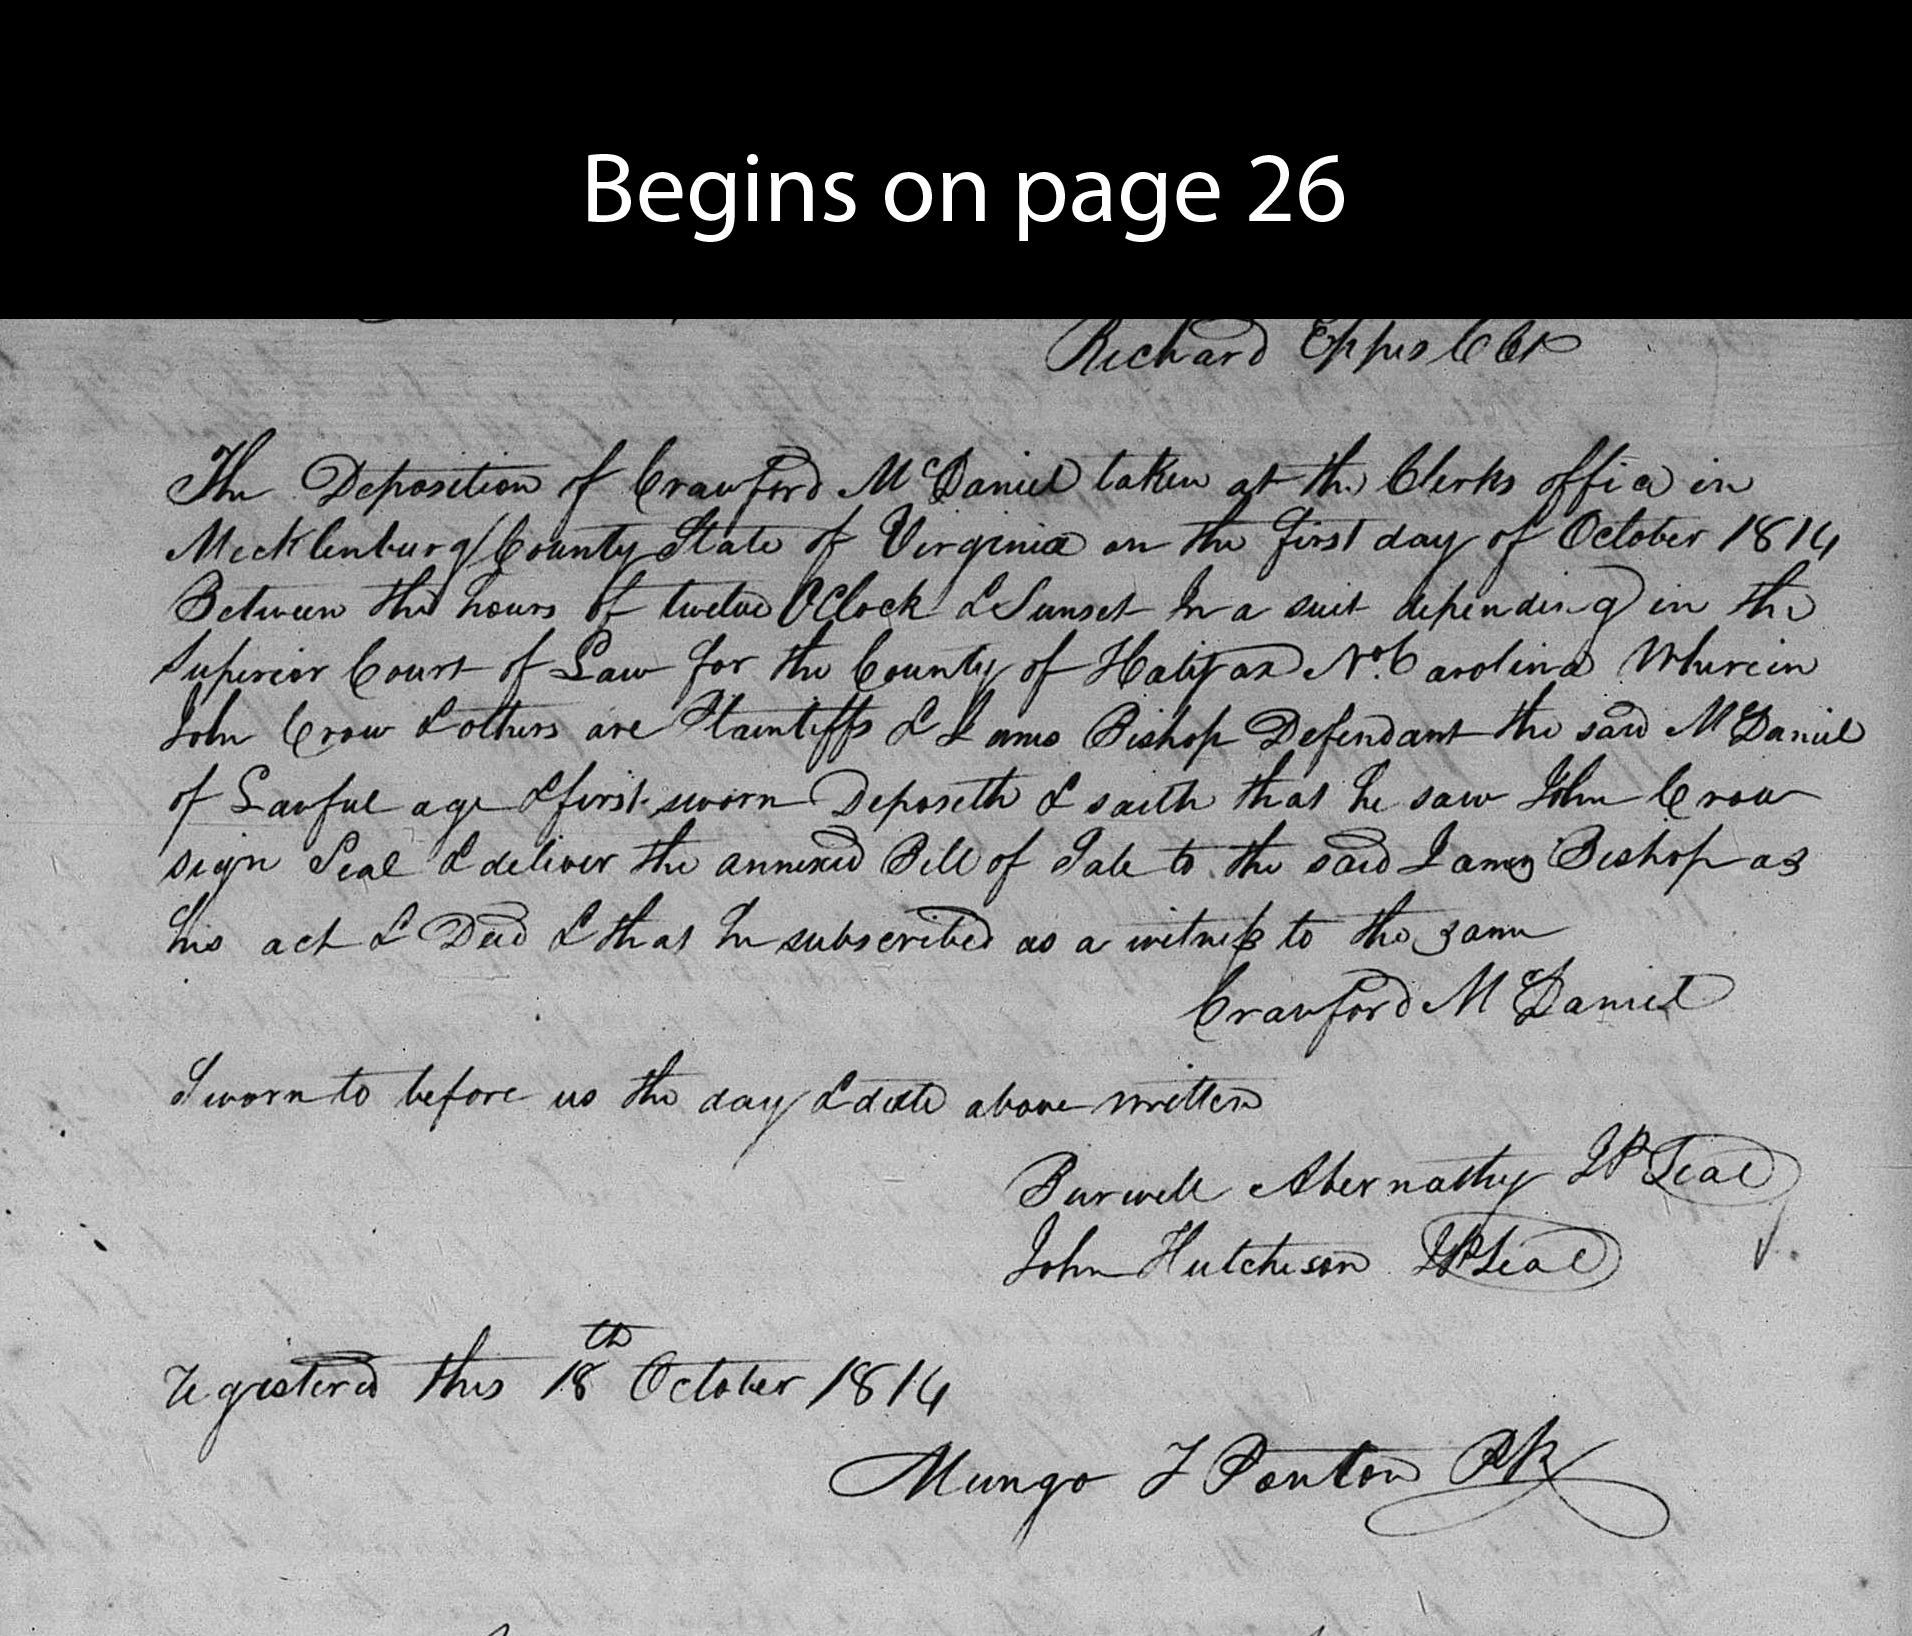 Begins on page 26
Richard Eppes CClk
The Deposition of Crawford McDaniel taken at the Clerks office in
Mecklenburg County State of Virginia on the first day of October 1814
Between the hours of twelve OClock & Sunset In a suit depending in the
Superior Court of Law for the County of Halifax No. Carolina Wherein
John Crow & others are Plaintiffs & James Bishop Defendant the said McDaniel
of Lawful age & first sworn Deposeth & saith that he saw John Crow
sign Seal & deliver the annexed Bill of Sale to the said James Bishop as
his act & Deed & that he subscribed as a witness to the same
Crawford McDaniel
Sworn to before us the day & date above written
Burwell Abernathy JP Seal
John Hutcheson JP Seal
registered this 18th October 1814
Mungo T Ponton PR